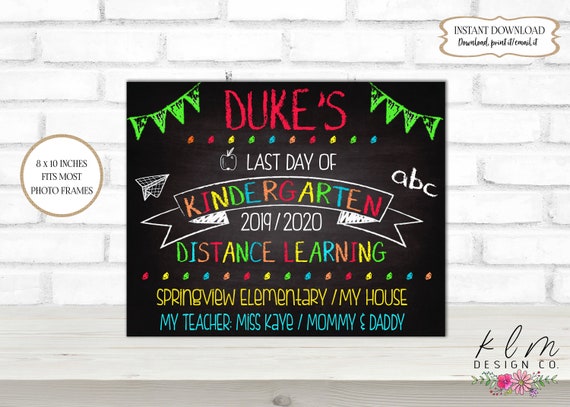 INSTANT DOWNLOAD
Download, print it/email it
8 x 10 INCHES
FITS MOST
PHOTO FRAMES
DUKE'S
LAST DAY OF
abc
KINDERGARTEN
2019 / 2020
DISTANCE LEARNING
SPRINGVIEW ELEMENTARY / MY HOUSE
MY TEACHER: MISS KAYE / MOMMY & DADDY
klm
DESIGN CO.